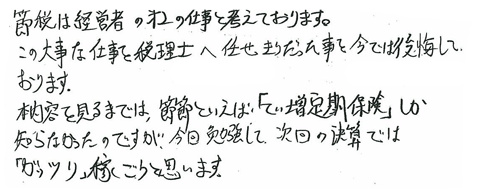 節税は経営者のオ2の仕事と考えております。
この大事な仕事を税理士へ任せきりだった事を今では後悔して
おります。
本内容を見るまでは、節節といえば、「てい増定期保険」しか
知らなかったのですが、今回勉強して、次回の決算では
「ガッツリ」稼ごうと思います